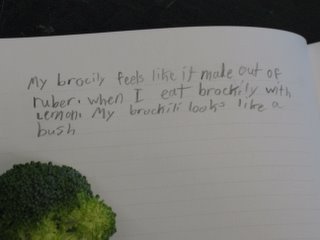 My brocily feels like it made out of
ruber. when I eat brockily with
Lemon. My brockili looks like a
bush